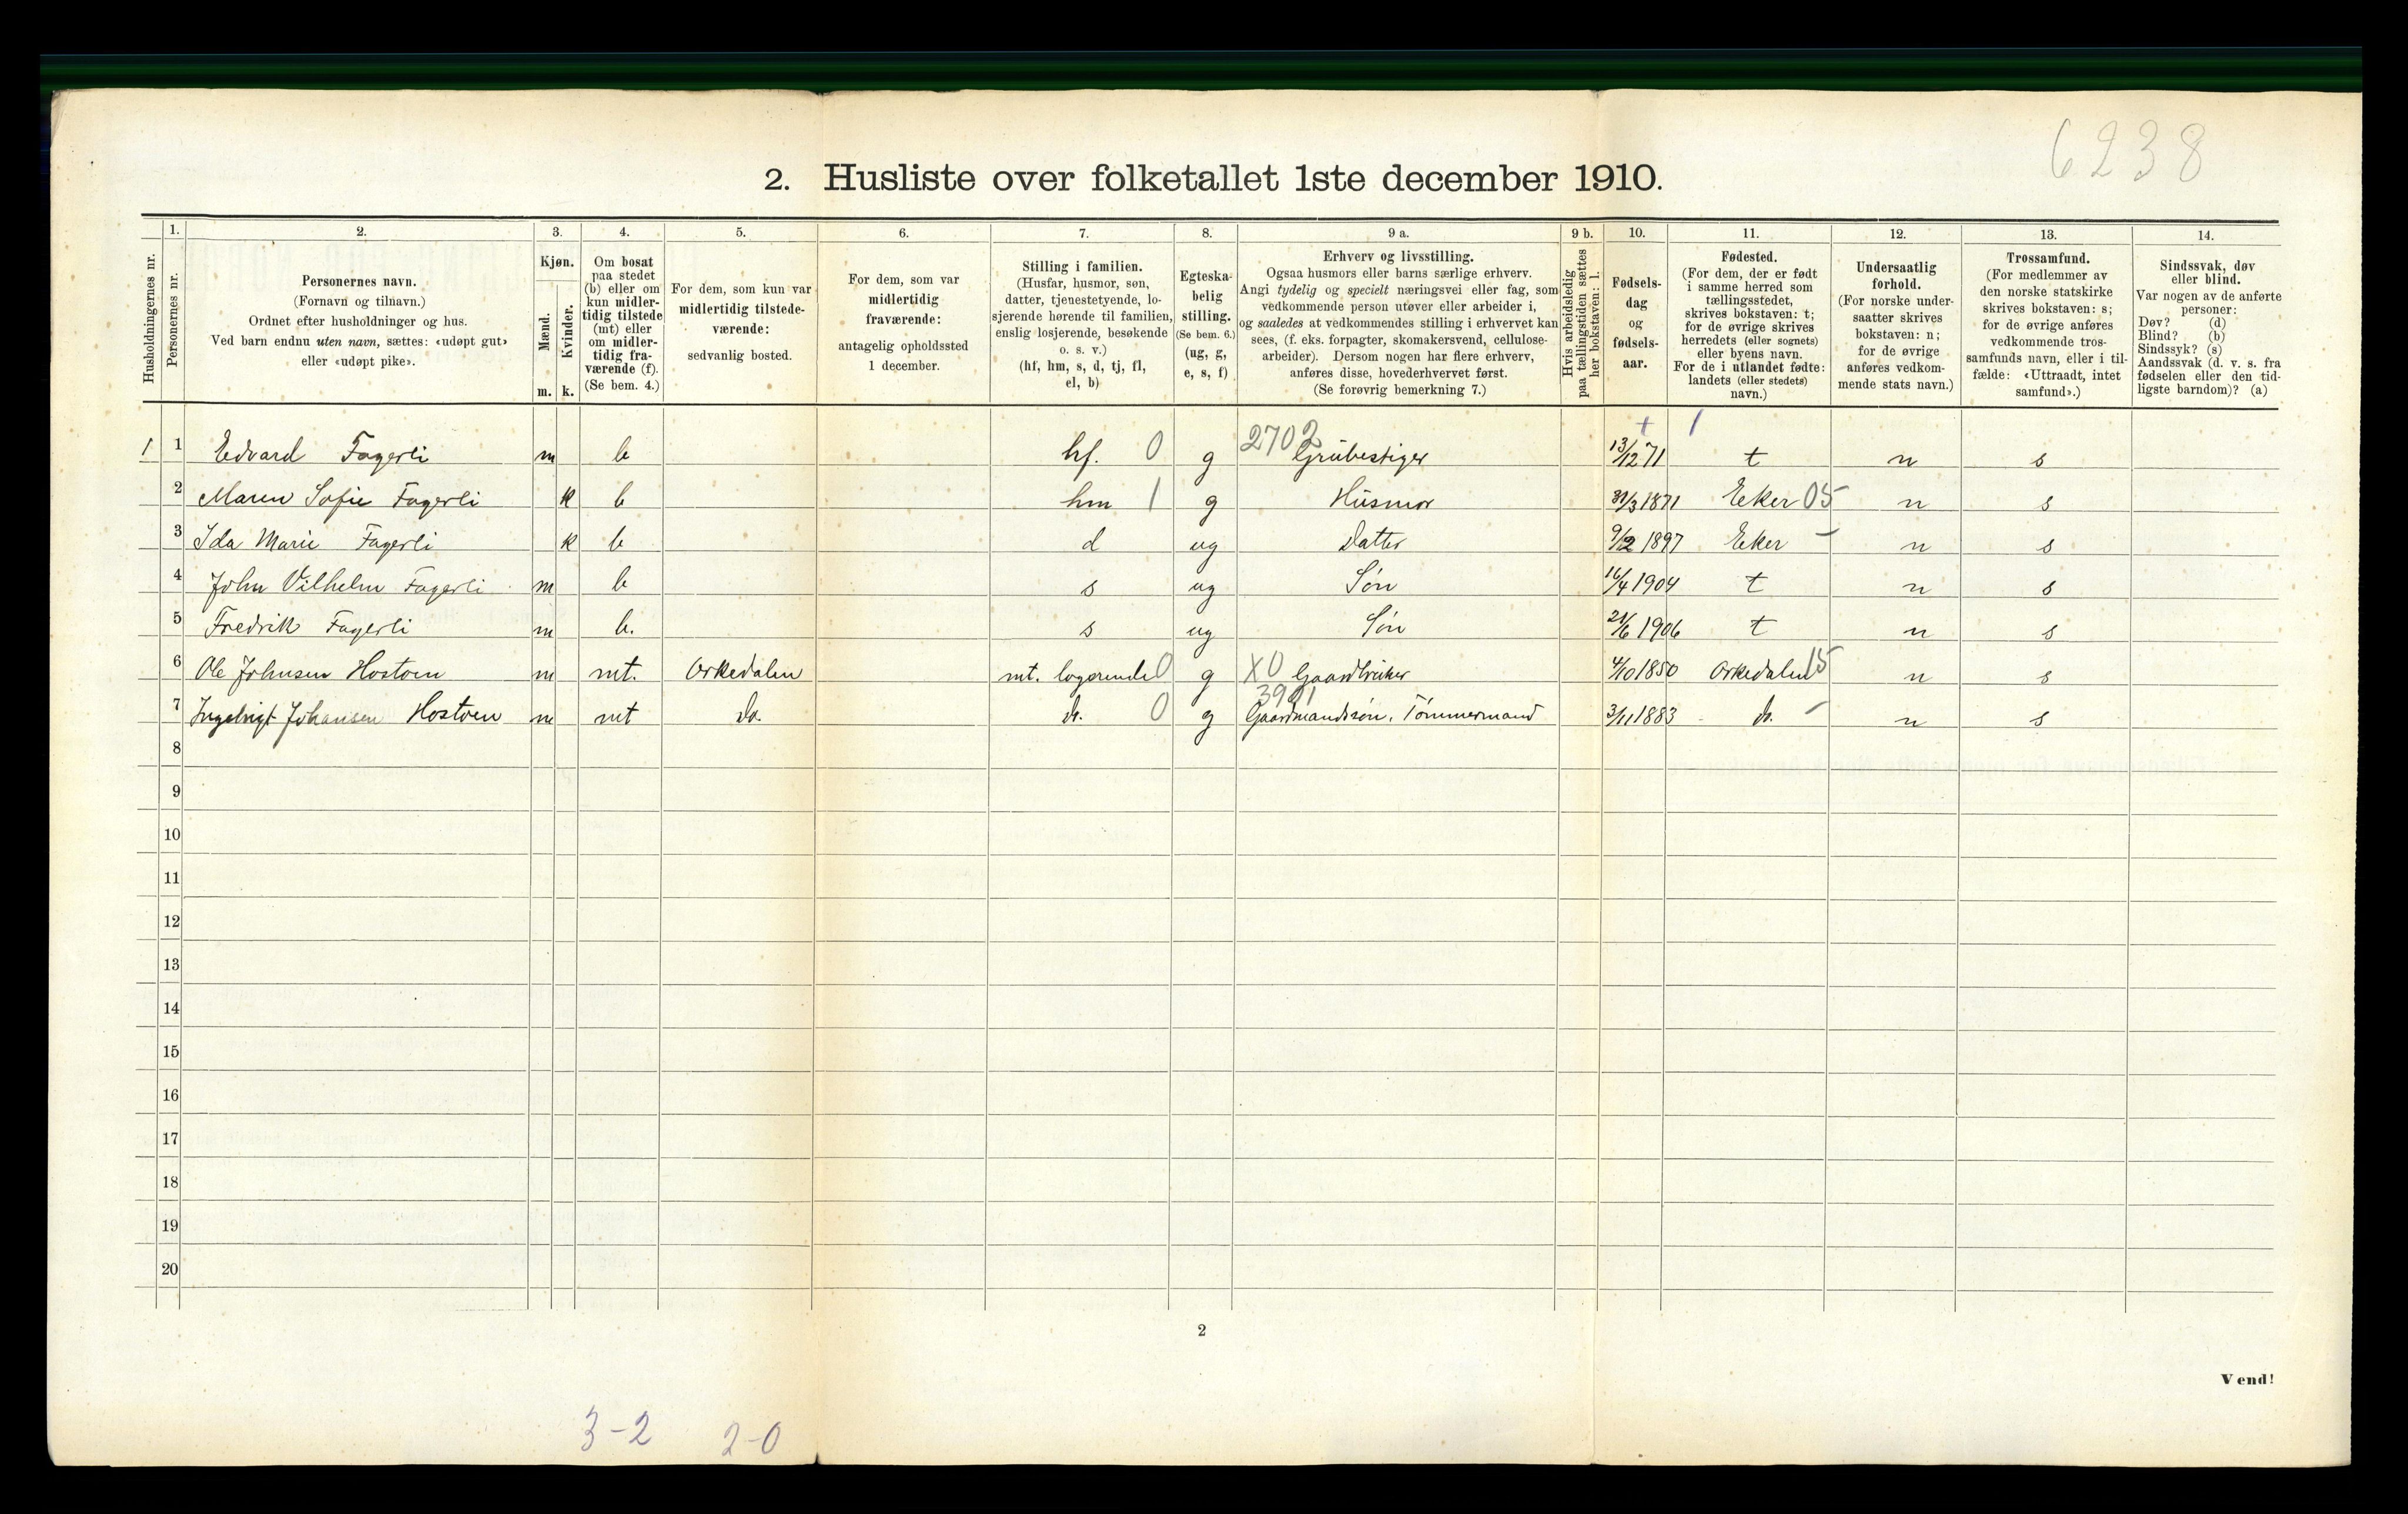 6238
2. Husliste over folketallet 1ste december 1910.
1. 2. 3. 4. 5. 6. 7. 8. 9 a. 9 b. 10. 11. 12. 13. 14.
Husholdningernes nr.
Personernes nr.
Personernes navn.
(Fornavn og tilnavn.)
Ordnet efter husholdninger og hus.
Ved barn endnu uten navn, sættes: «udøpt gut»
eller «udøpt pike».
Kjøn.
Mænd.
Kvinder.
m. k.
Om bosat
paa stedet
(b) eller om
kun midler-
tidig tilstede
(mt) eller
om midler-
tidig fra-
værende (f).
(Se bem. 4.)
For dem, som kun var
midlertidig tilstede-
værende:
sedvanlig bosted.
For dem, som var
midlertidig
fraværende:
antagelig opholdssted
1 december.
Stilling i familien.
(Husfar, husmor, søn,
datter, tjenestetyende, lo-
sjerende hørende til familien,
enslig losjerende, besøkende
o. s. v.)
(hf, hm, s, d, tj, fl,
el, b)
Egteska-
belig
stilling.
(Se bem. 6.)
(ug, g,
e, s, f)
Erhverv og livsstilling.
Ogsaa husmors eller barns særlige erhverv.
Angi tydelig og specielt næringsvei eller fag, som
vedkommende person utøver eller arbeider i,
og saaledes at vedkommendes stilling i erhvervet kan
sees, (f. eks. forpagter, skomakersvend, cellulose-
arbeider). Dersom nogen har flere erhverv,
anføres disse, hovederhvervet først.
(Se forøvrig bemerkning 7.)
Hvis arbeidsledig
paa tællingstiden sættes
her bokstaven: l.
Fødsels-
dag
og
fødsels-
aar.
Fødested.
(For dem, der er født
i samme herred som
tællingsstedet,
skrives bokstaven: t;
for de øvrige skrives
herredets (eller sognets)
eller byens navn.
For de i utlandet fødte:
landets (eller stedets)
navn.)
Undersaatlig
forhold.
(For norske under-
saatter skrives
bokstaven: n;
for de øvrige
anføres vedkom-
mende stats navn.)
Trossamfund.
(For medlemmer av
den norske statskirke
skrives bokstaven: s;
for de øvrige anføres
vedkommende tros-
samfunds navn, eller i til-
fælde: «Uttraadt, intet
samfund».)
Sindssvak, døv
eller blind.
Var nogen av de anførte
personer:
Døv? (d)
Blind? (b)
Sindssyk? (s)
Aandssvak (d. v. s. fra
fødselen eller den tid-
ligste barndom)? (a)
1 1 Edvard Fagerli m b hf. 0 g 2702 Grubestiger 13/12 71 t n s
2 Maren Sofie Fagerli k b hm 1 g Husmor 31/3 1871 Eker 05 n s
3 Ida Marie Fagerli k b d ug Datter 9/12 1897 Eker - n s
4 John Vilhelm Fagerli m b s ug Søn 16/4 1904 t n s
5 Fredrik Fagerli m b. s ug Søn 21/6 1906 t n s
6 Ole Johnsen Hostoen m mt. Orkedalen mt. logerende 0 g X0 Gaardbruker 4/10 1850 Orkedalen 15 n s
7 Ingebrigt Johansen Hostoen m mt do. do. 0 g 3901 Gaardmandssøn, Tømmermand 3/11 1883 do. - n s
8
9
10
11
12
13
14
15
16
17
18
19
20
2
Vend!
3-2 2-0